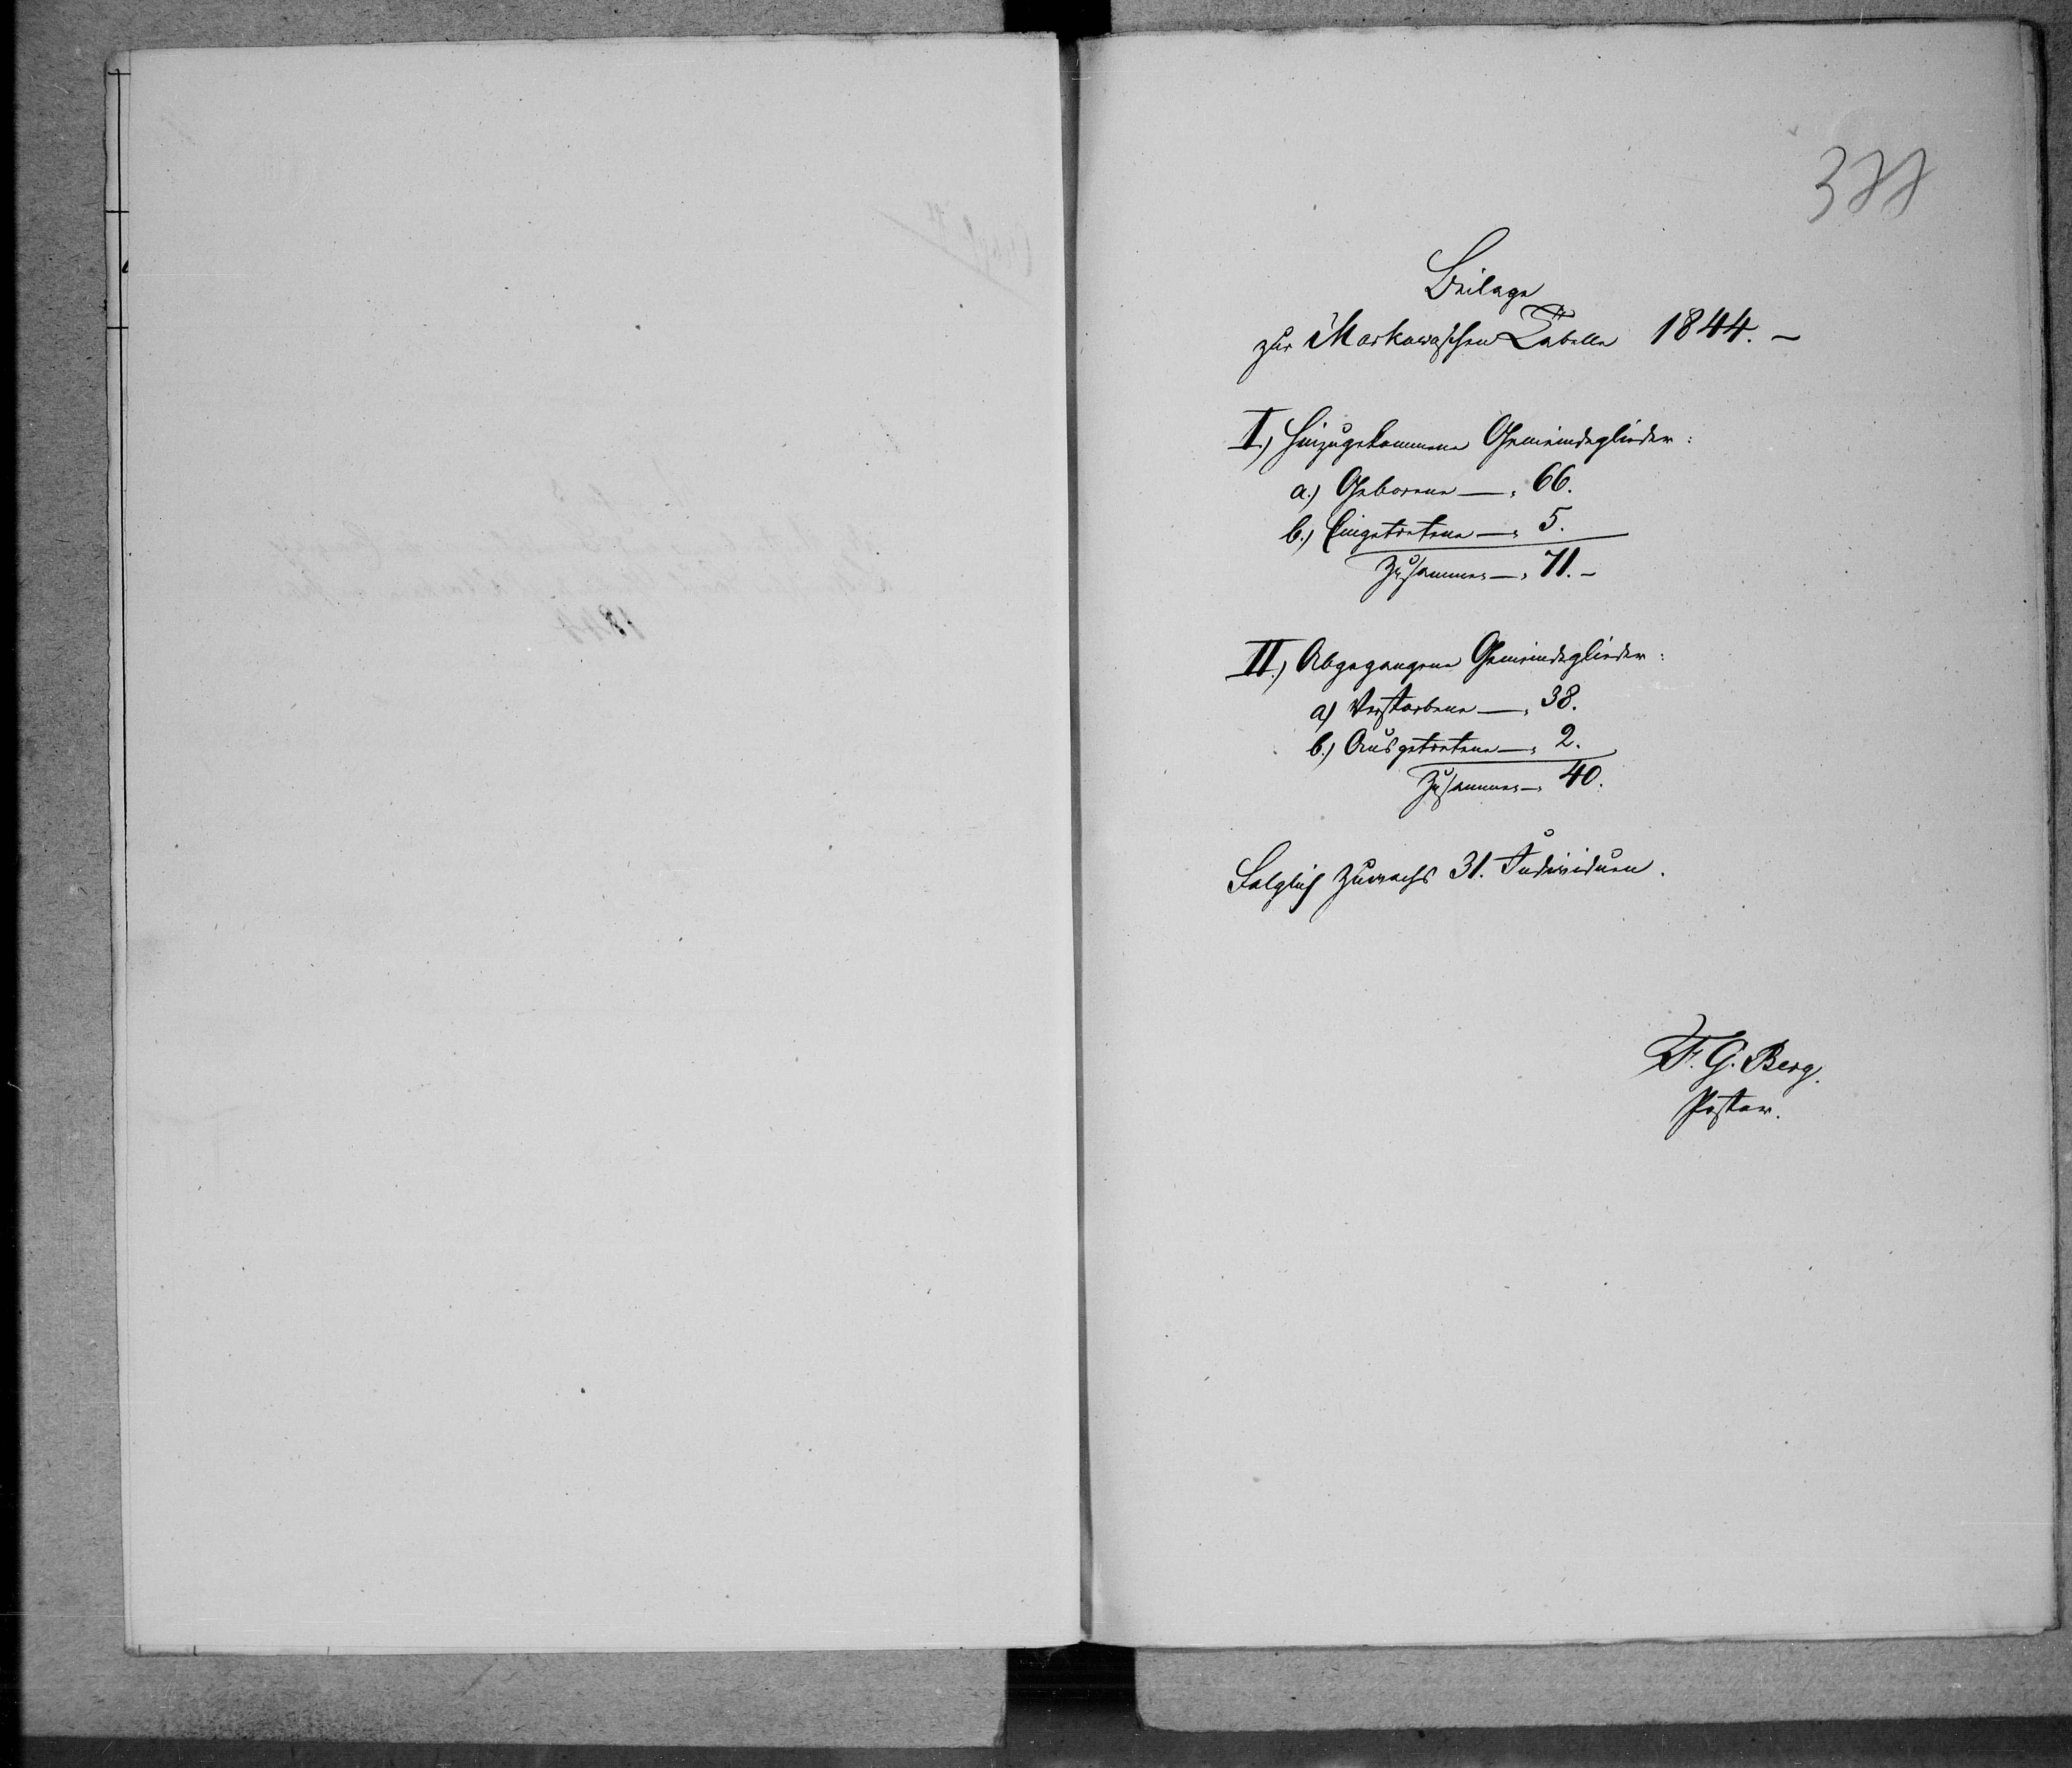 377
Beilage
zur Markowaschen Tabelle 1844. –
I.) Hinzugekommene Gemeindeglieder:
a.) Geborene —, 66.
b.) Eingetretene —, 5.
Zusammen —, 71. –
II.) Abgegangene Gemeindeglieder:
a) Verstorbene —, 38.
b.) Ausgetretene —, 2.
Zusammen —, 40.
Folglich Zuwachs 31. Individuen.
F. G. Berg.
Pastor.
1844